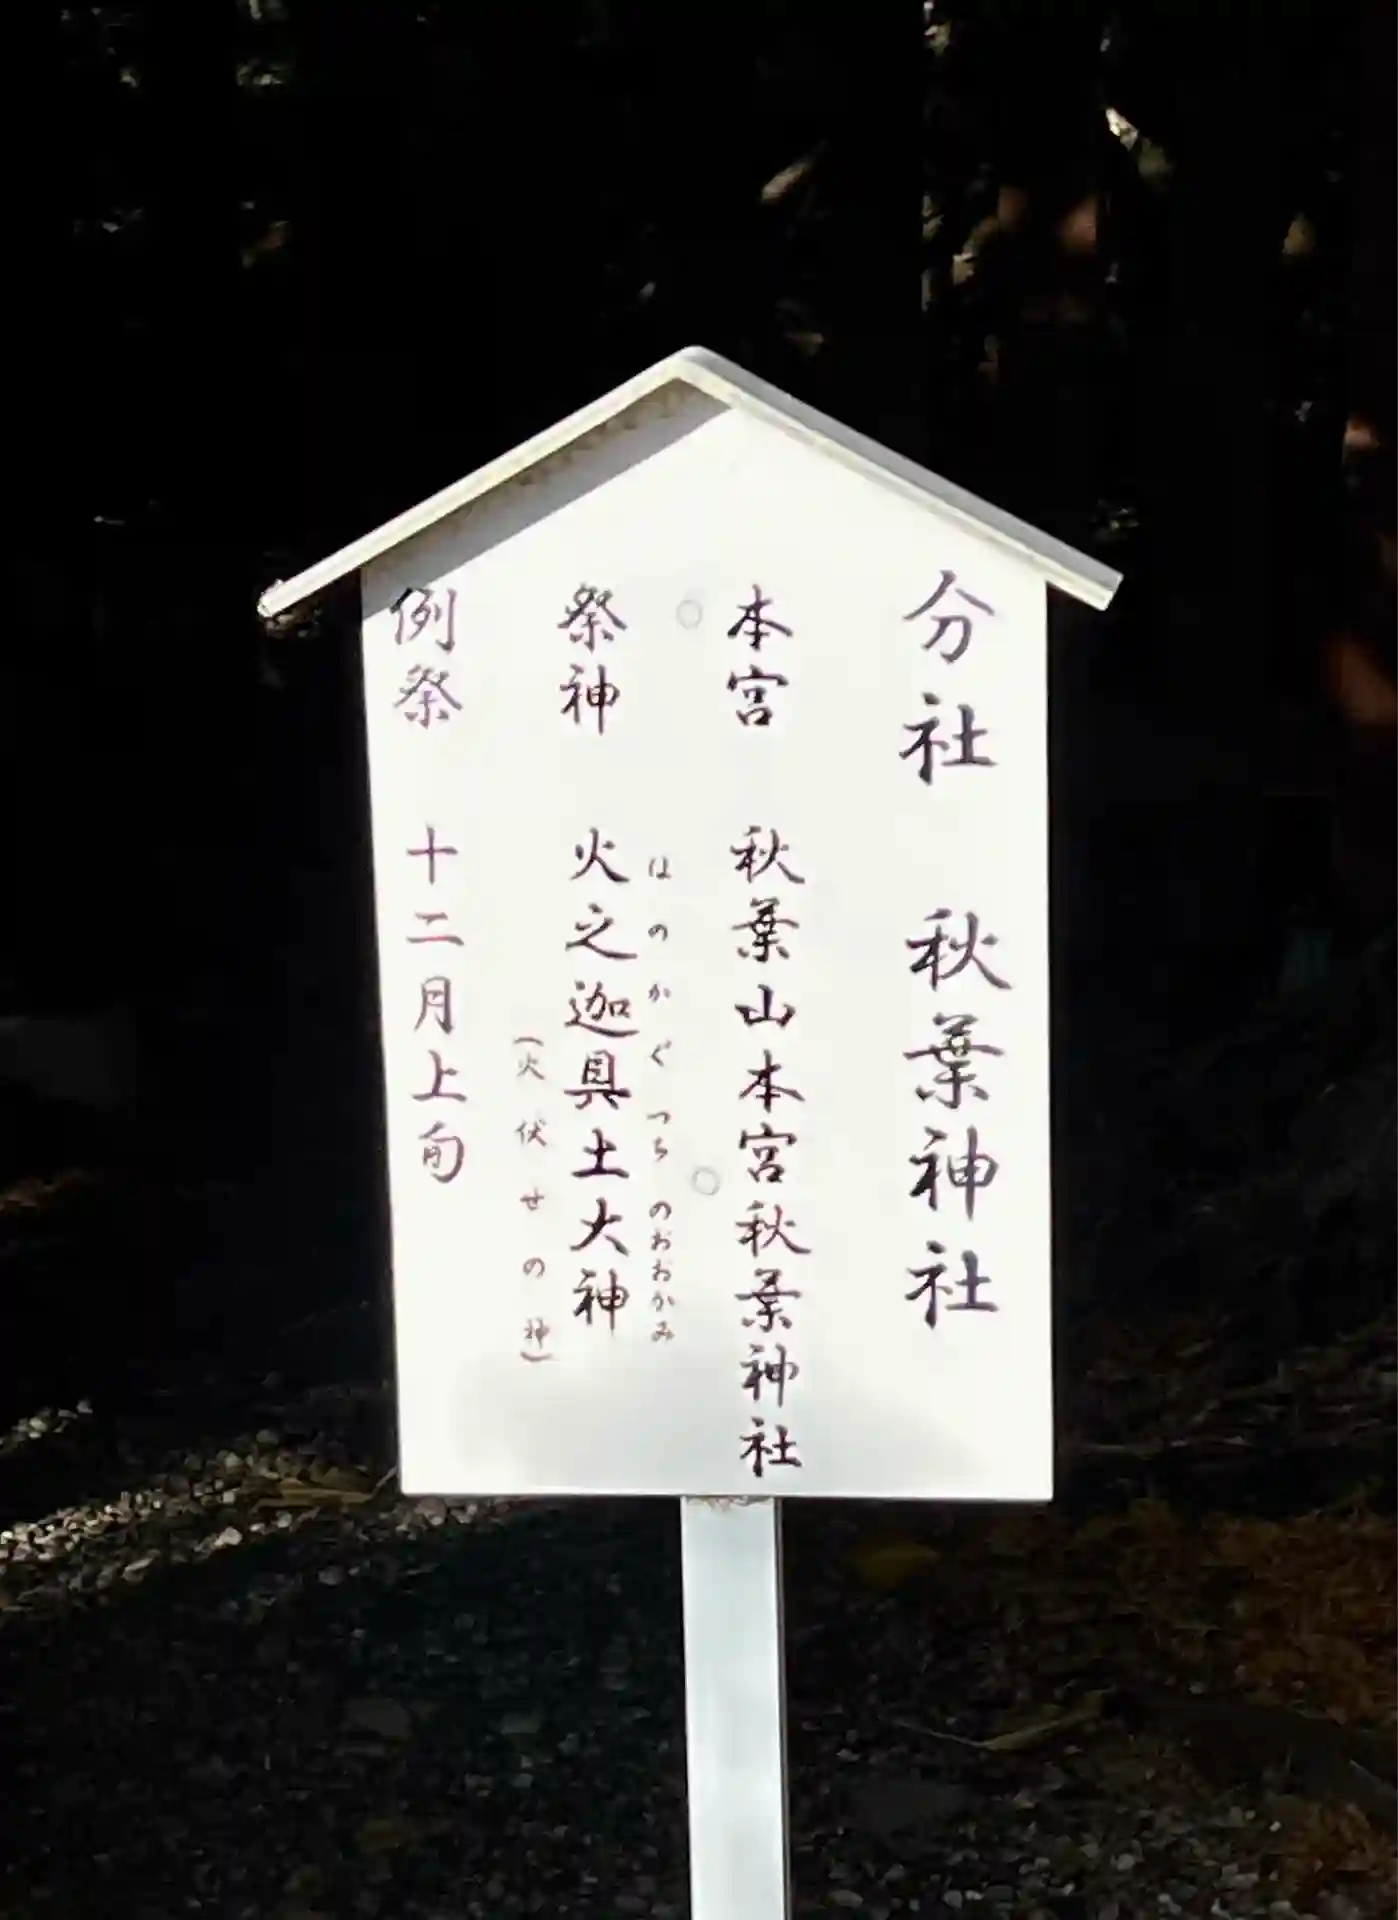 分社 秋葉神社
本宮 秋葉山本宮秋葉神社
はのかぐつちのおおかみ
祭神 火之迦具土大神
(火伏せの神)
例祭 十二月上旬